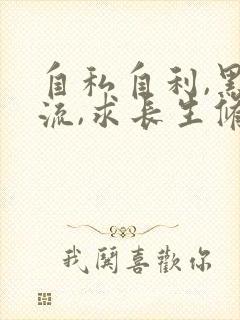 自私自利,黑
流,求長生修
我喜歡你